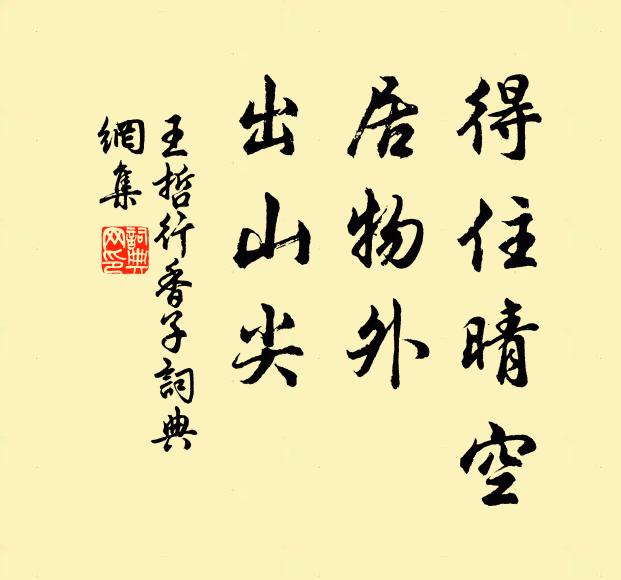 得住晴空
居物外
出山尖
王哲行香子詞典
網集
詞典网印